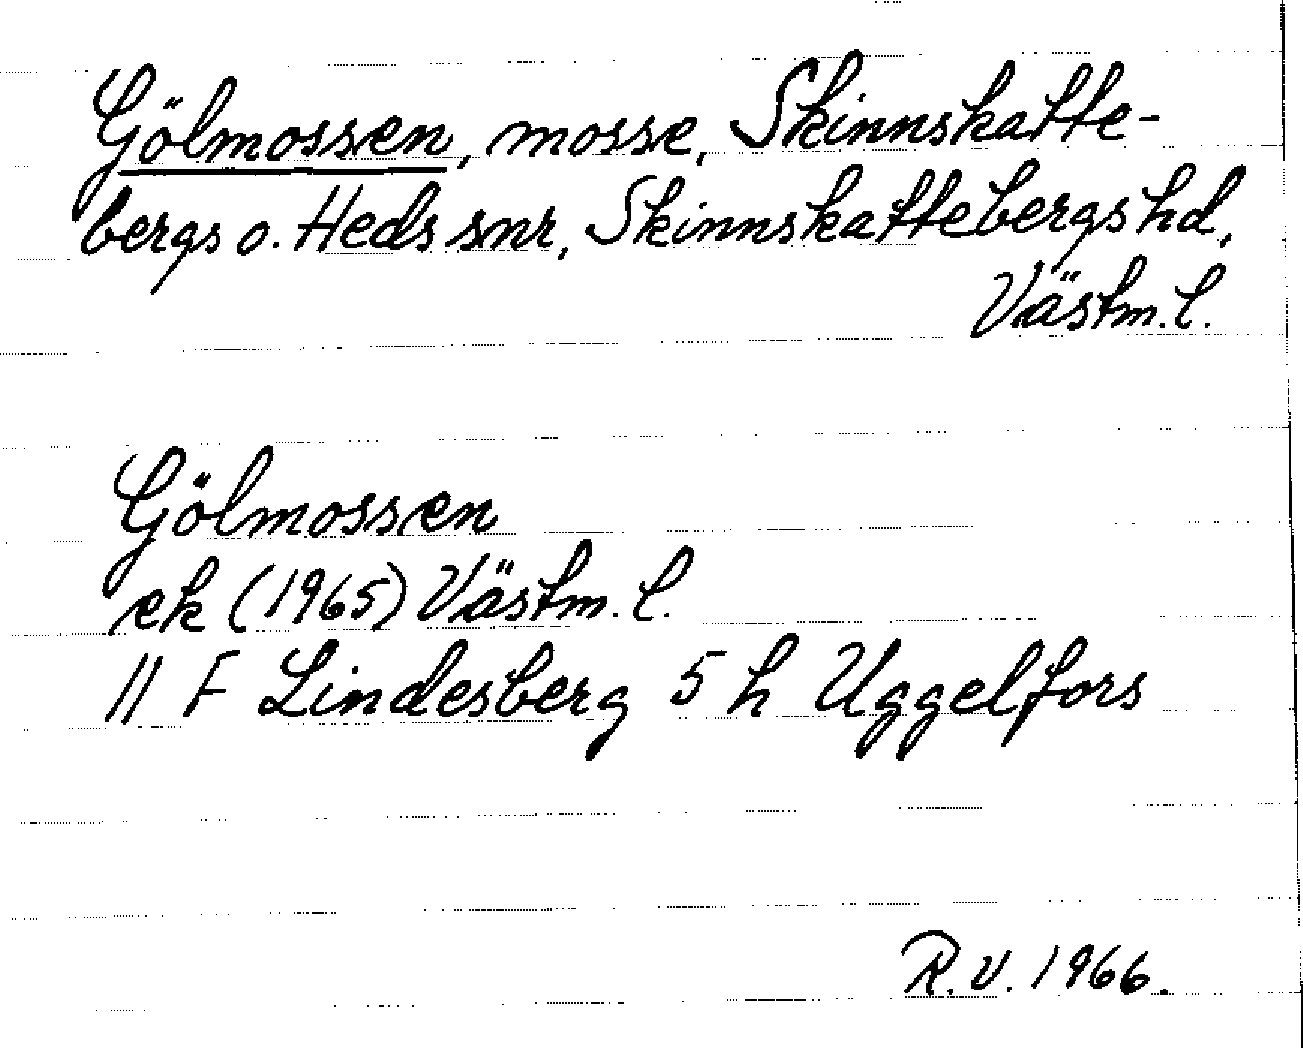 Gölmossen, mosse, Skinnskatte-
bergs o. Heds snr, Skinnskattebergs hd,
Västm. l.
Gölmossen
ek (1965) Västm. l.
11 F Lindesberg 5 h Uggelfors
R.V. 1966.